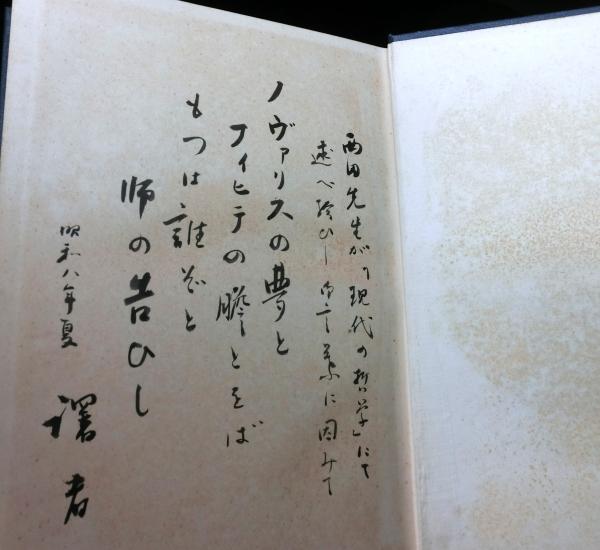 西田先生が「現代の哲学」にて
述べ給ひし御言葉に因みて
ノヴァリスの夢と
フィヒテの膽とをば
もつは誰ぞと
師の告ひし
昭和八年夏
譯者